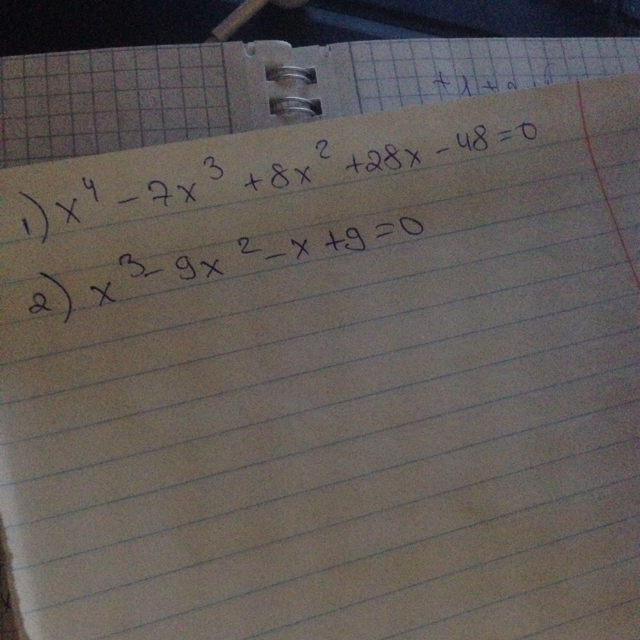 1) x⁴ - 7x³ + 8x² + 28x - 48 = 0
2) x³ - 9x² - x + 9 = 0